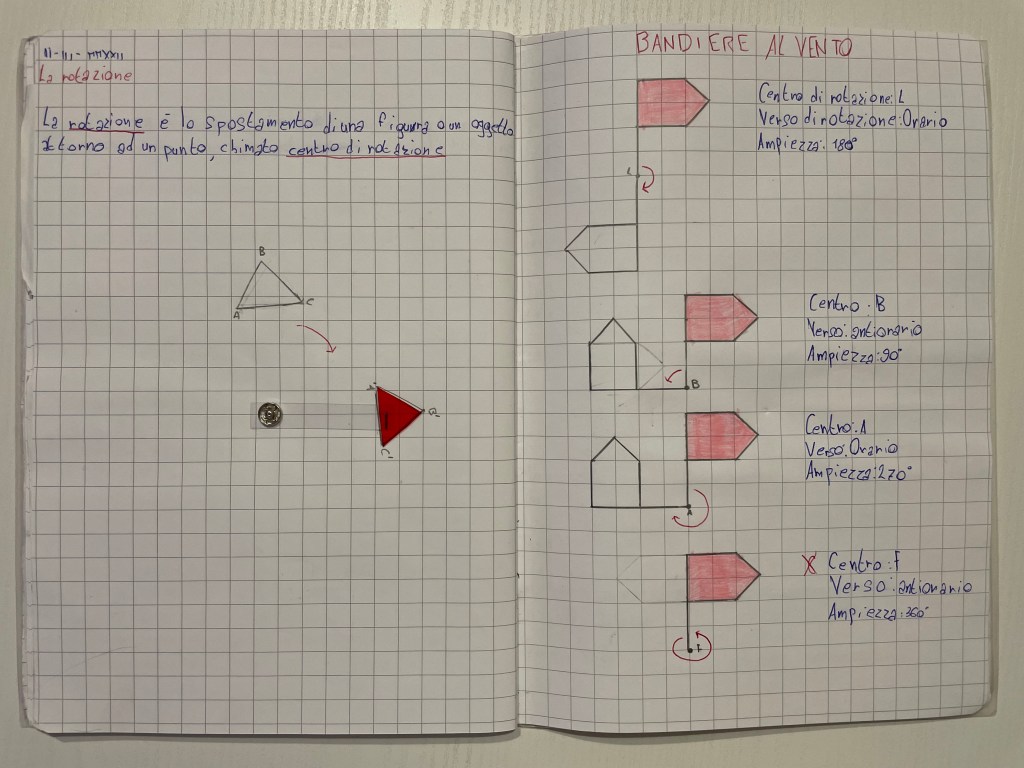 La rotazione
La rotazione è lo spostamento di una figura o un oggetto
attorno ad un punto, chimato centro di rotazione
B
C
A
BANDIERE AL VENTO
Centro di rotazione: L
Verso di rotazione: Orario
Ampiezza: 180°
L
Centro: B
Verso: antiorario
Ampiezza: 90°
B
Centro: A
Verso: Orario
Ampiezza: 270°
A
Centro: F
Verso: antiorario
Ampiezza: 360°
F